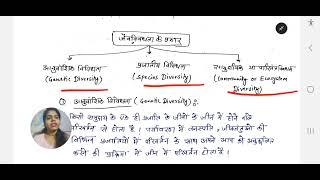 जैवविविधता के प्रकार
आनुवांशिक विविधता
(Genetic Diversity)
प्रजातीय विविधता
(Species Diversity)
सामुदायिक या पारिस्थितिकतंत्र
(Community or Ecosystem
Diversity)
① आनुवांशिक विविधता (Genetic Diversity) :
किसी समुदाय के एक ही प्रजाति के जीवों के जीन में होने वाले
परिवर्तन से होता है। पर्यावरण में बदलाव, जीवजन्तुओं की
विभिन्न प्रजातियों में परिवर्तन के साथ अपने आप को अनुकूलित
करने की प्रक्रिया में जीन में परिवर्तन होता है।